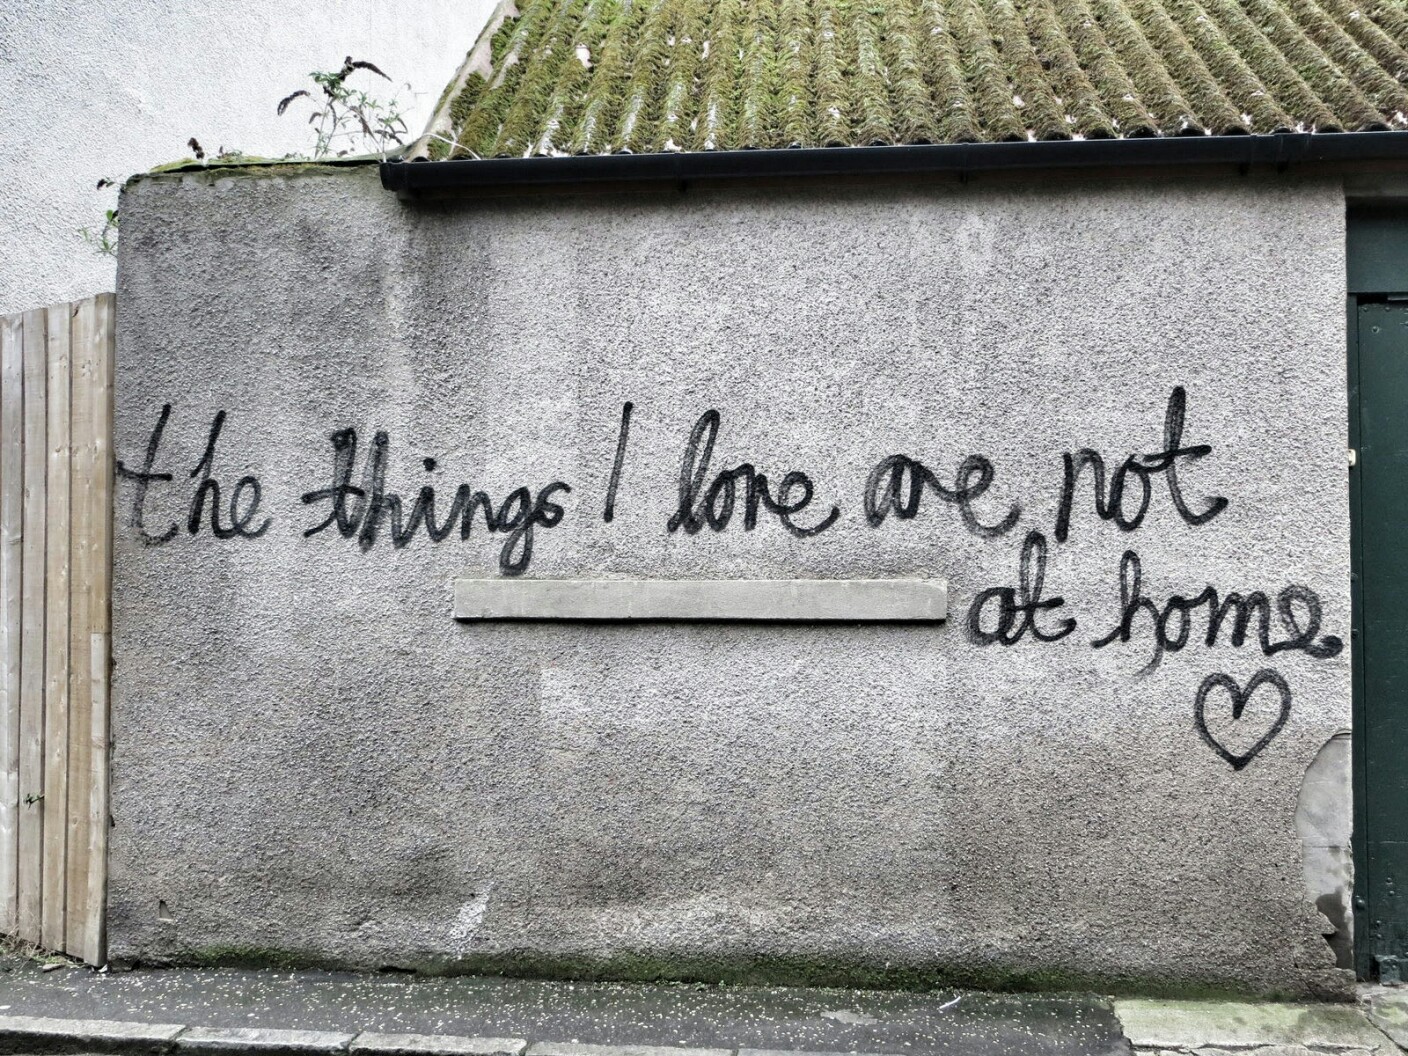 the things I love are not
at home